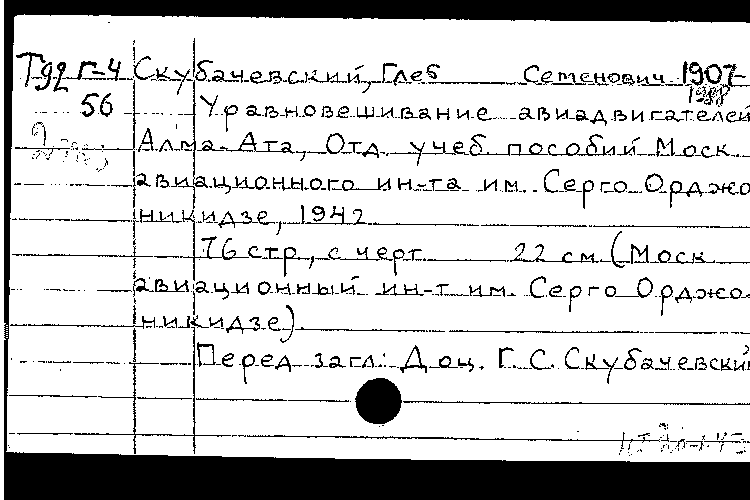 Тд2 Г-4 Скубачевский, Глеб Семенович 1907-
1988
56 Уравновешивание авиадвигателей
Алма-Ата, Отд. учеб. пособий Моск.
авиационного ин-та им. Серго Орджо
никидзе, 1942
76 стр., с черт. 22 см. (Моск.
авиационный ин-т им. Серго Орджо-
никидзе).
Перед загл.: Доц. Г. С. Скубачевский